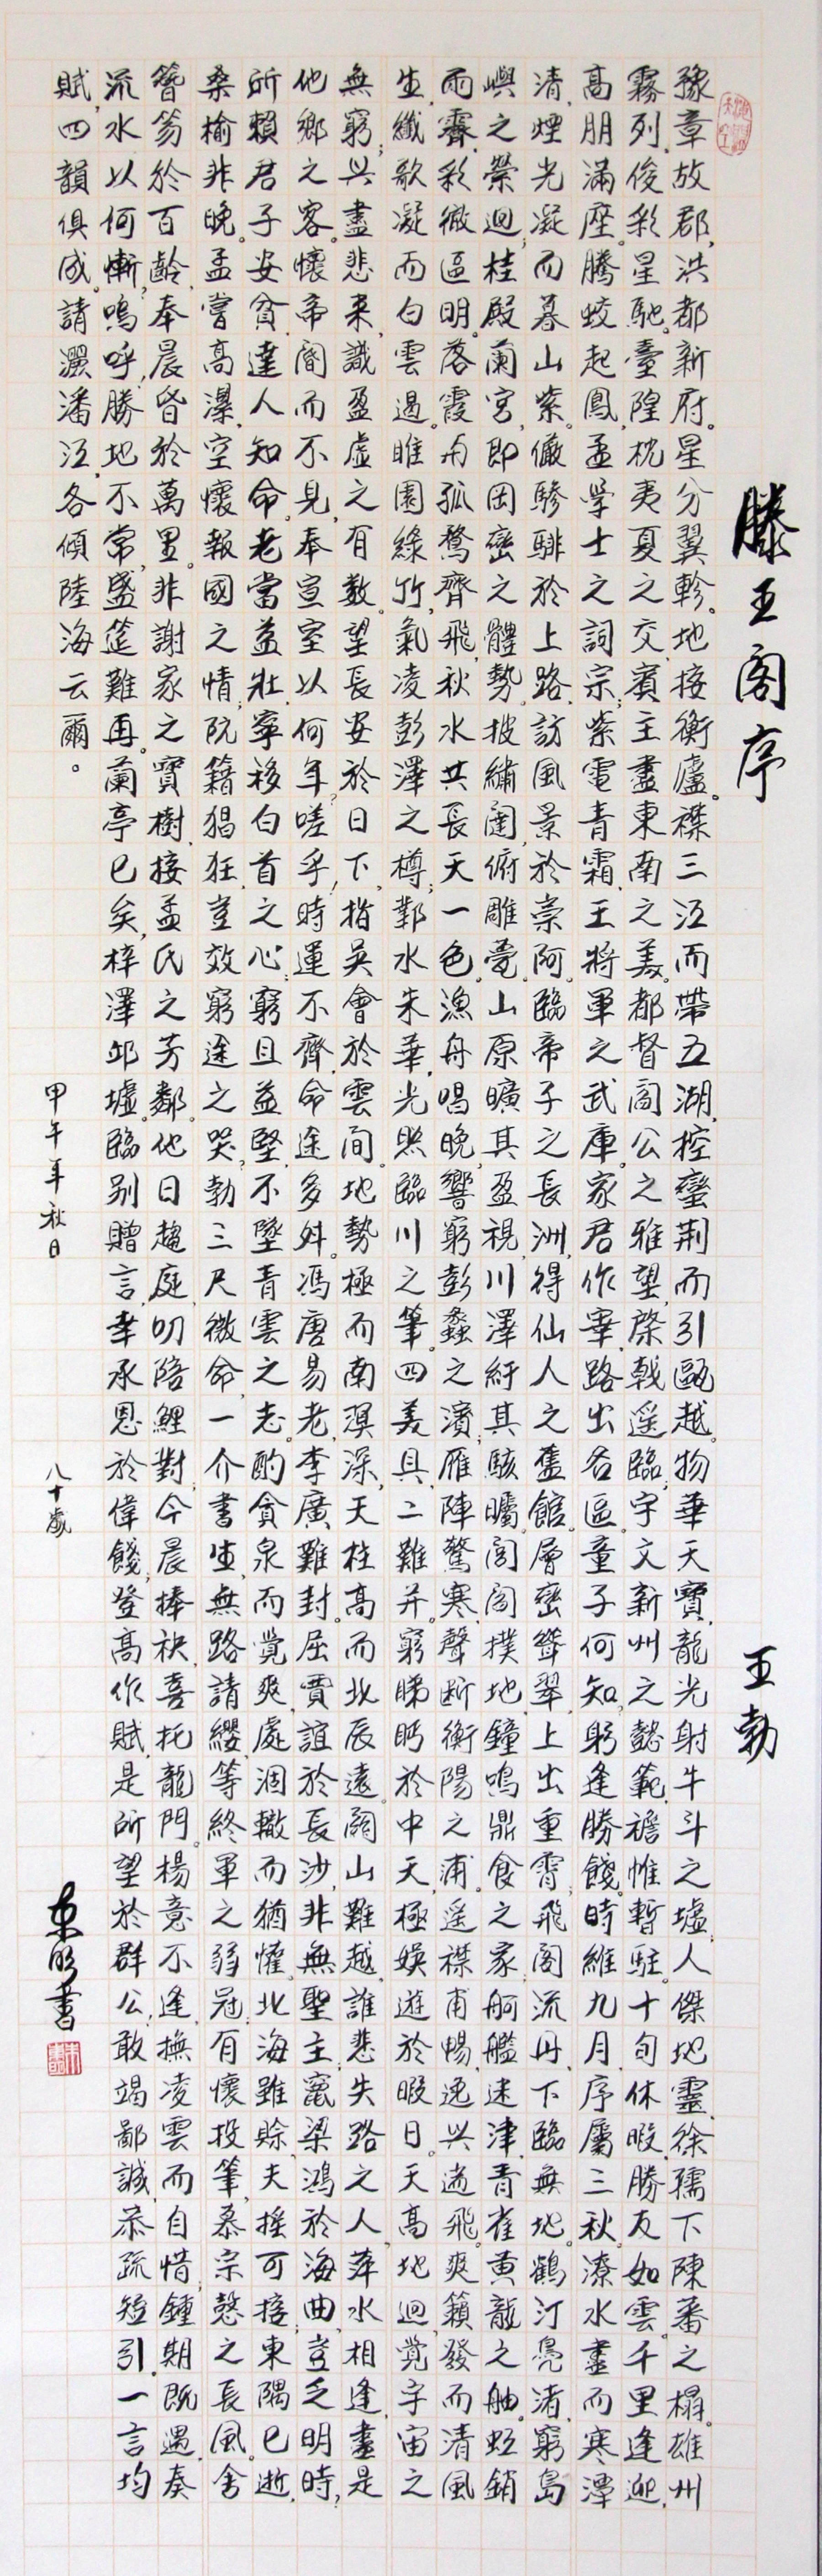 滕王阁序 王勃
豫章故郡,洪都新府。星分翼軫,地接衡廬。襟三江而帶五湖,控蠻荆而引甌越。物華天寶,龍光射牛斗之墟;人傑地靈,徐孺下陳蕃之榻。雄州
霧列,俊彩星馳。臺隍枕夷夏之交,賓主盡東南之美。都督閻公之雅望,棨戟遥臨;宇文新州之懿範,襜帷暫駐。十旬休暇,勝友如雲;千里逢迎,
高朋滿座。騰蛟起鳳,孟學士之詞宗;紫電青霜,王將軍之武庫。家君作宰,路出名區;童子何知,躬逢勝餞。時維九月,序屬三秋。潦水盡而寒潭
清,煙光凝而暮山紫。儼驂騑於上路,訪風景於崇阿。臨帝子之長洲,得仙人之舊館。層巒聳翠,上出重霄;飛閣流丹,下臨無地。鶴汀鳧渚,窮島
嶼之縈迴;桂殿蘭宮,即岡巒之體勢。披繡闥,俯雕甍,山原曠其盈視,川澤紆其駭矚。閭閻撲地,鐘鳴鼎食之家;舸艦迷津,青雀黄龍之舳。虹銷
雨霽,彩徹區明。落霞与孤鶩齊飛,秋水共長天一色。漁舟唱晚,響窮彭蠡之濱;雁陣驚寒,聲断衡陽之浦。遥襟甫暢,逸兴遄飛。爽籟發而清風
生,纖歌凝而白雲遏。睢園綠竹,氣凌彭澤之樽;鄴水朱華,光照臨川之筆。四美具,二難并。窮睇眄於中天,極娛遊於暇日。天高地迥,覺宇宙之
無窮;兴盡悲来,識盈虛之有數。望長安於日下,指吳會於雲間。地勢極而南溟深,天柱高而北辰遠。關山難越,誰悲失路之人;萍水相逢,盡是
他鄉之客。懷帝閽而不見,奉宣室以何年。嗟乎,時運不齊,命途多舛。馮唐易老,李廣難封。屈賈誼於長沙,非無聖主;竄梁鴻於海曲,豈乏明時,
所賴君子安貧,達人知命。老當益壯,寧移白首之心;窮且益堅,不墜青雲之志。酌貪泉而覺爽,處涸轍而猶懽。北海雖賒,夫搖可接;東隅已逝,
桑榆非晚。孟嘗高潔,空懷報國之情;阮籍猖狂,豈效窮途之哭,勃三尺微命,一介書生。無路請纓,等終軍之弱冠;有懷投筆,慕宗愨之長風。舍
簪笏於百齡,奉晨昏於萬里。非謝家之寶樹,接孟氏之芳鄰。他日趨庭,叨陪鯉對;今晨捧袂,喜托龍門。楊意不逢,撫凌雲而自惜;鍾期既遇,奏
流水以何慚,嗚呼,勝地不常,盛筵難再。蘭亭已矣,梓澤邱墟。臨别贈言,幸承恩於偉餞;登高作賦,是所望於群公,敢竭鄙誠,恭疏短引。一言均
賦,四韻俱成。請灑潘江,各傾陸海云爾。
甲午年秋日 八十歲 東明書